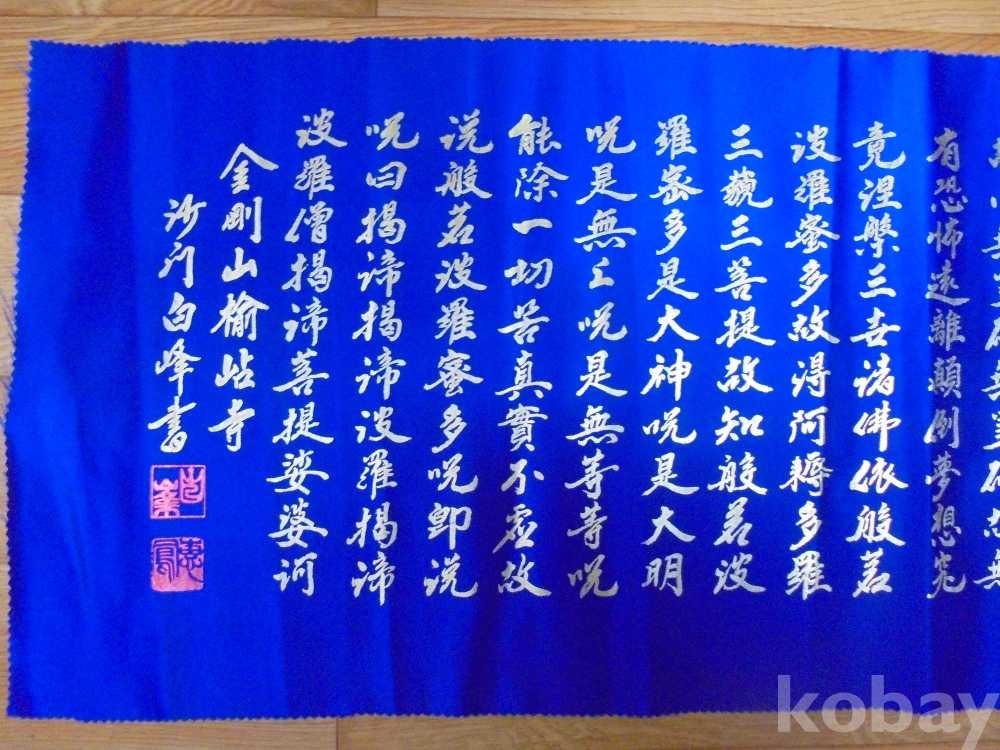 有恐怖遠離顛倒夢想究
竟涅槃三世諸佛依般若
波羅蜜多故得阿耨多羅
三藐三菩提故知般若波
羅蜜多是大神呪是大明
呪是無上呪是無等等呪
能除一切苦真實不虛故
説般若波羅蜜多呪卽説
呪曰揭諦揭諦波羅揭諦
波羅僧揭諦菩提娑婆訶
金剛山榆岾寺
沙门白峰書
kobay